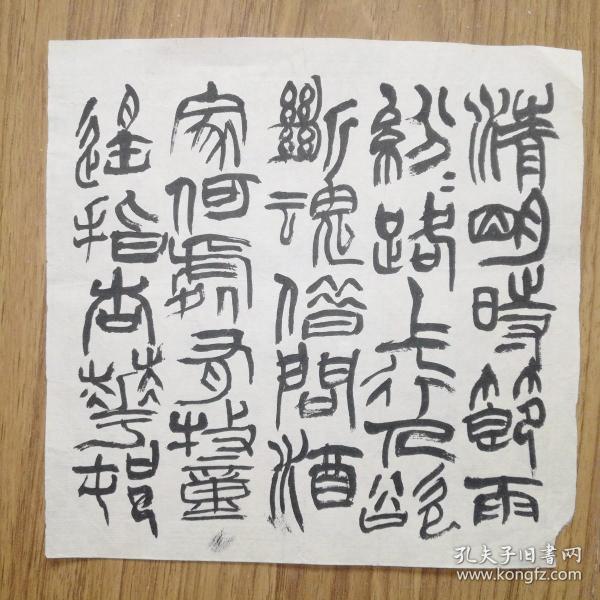 清明時節雨
紛〻路上行人欲
斷魂借問酒
家何處有牧童
遙指杏華邨
孔夫子旧書网
www.kongfz.com